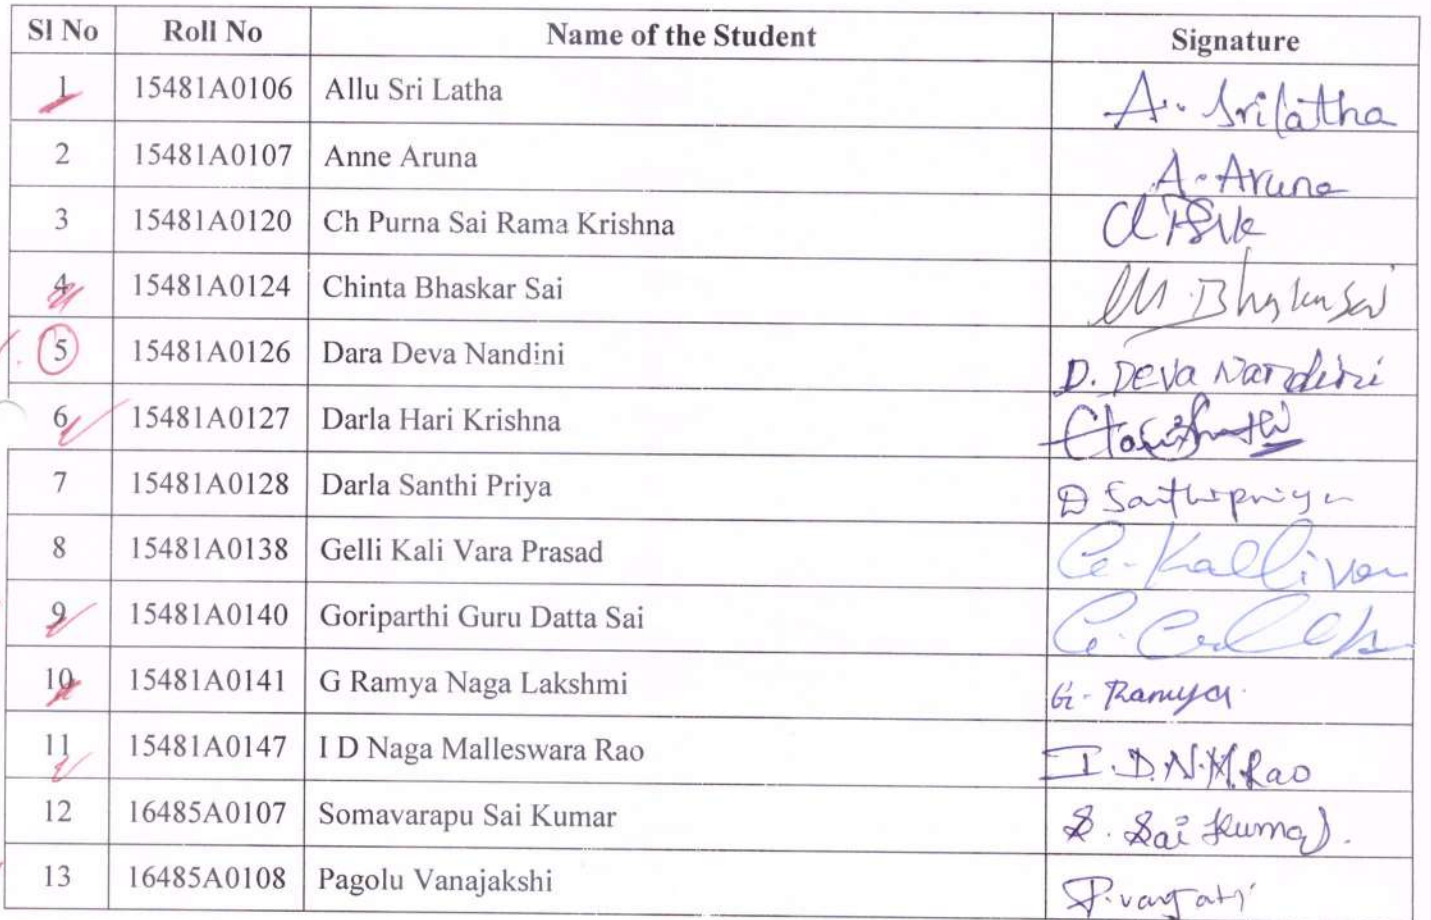 Sl No Roll No Name of the Student Signature
1 15481A0106 Allu Sri Latha A. Srilatha
2 15481A0107 Anne Aruna A. Aruna
3 15481A0120 Ch Purna Sai Rama Krishna
4 15481A0124 Chinta Bhaskar Sai
5 15481A0126 Dara Deva Nandini D. Deva Nandini
6 15481A0127 Darla Hari Krishna
7 15481A0128 Darla Santhi Priya D Santhipriya
8 15481A0138 Gelli Kali Vara Prasad
9 15481A0140 Goriparthi Guru Datta Sai
10 15481A0141 G Ramya Naga Lakshmi G. Ramya
11 15481A0147 I D Naga Malleswara Rao I.D.N.M.Rao
12 16485A0107 Somavarapu Sai Kumar S. Sai Kumar.
13 16485A0108 Pagolu Vanajakshi